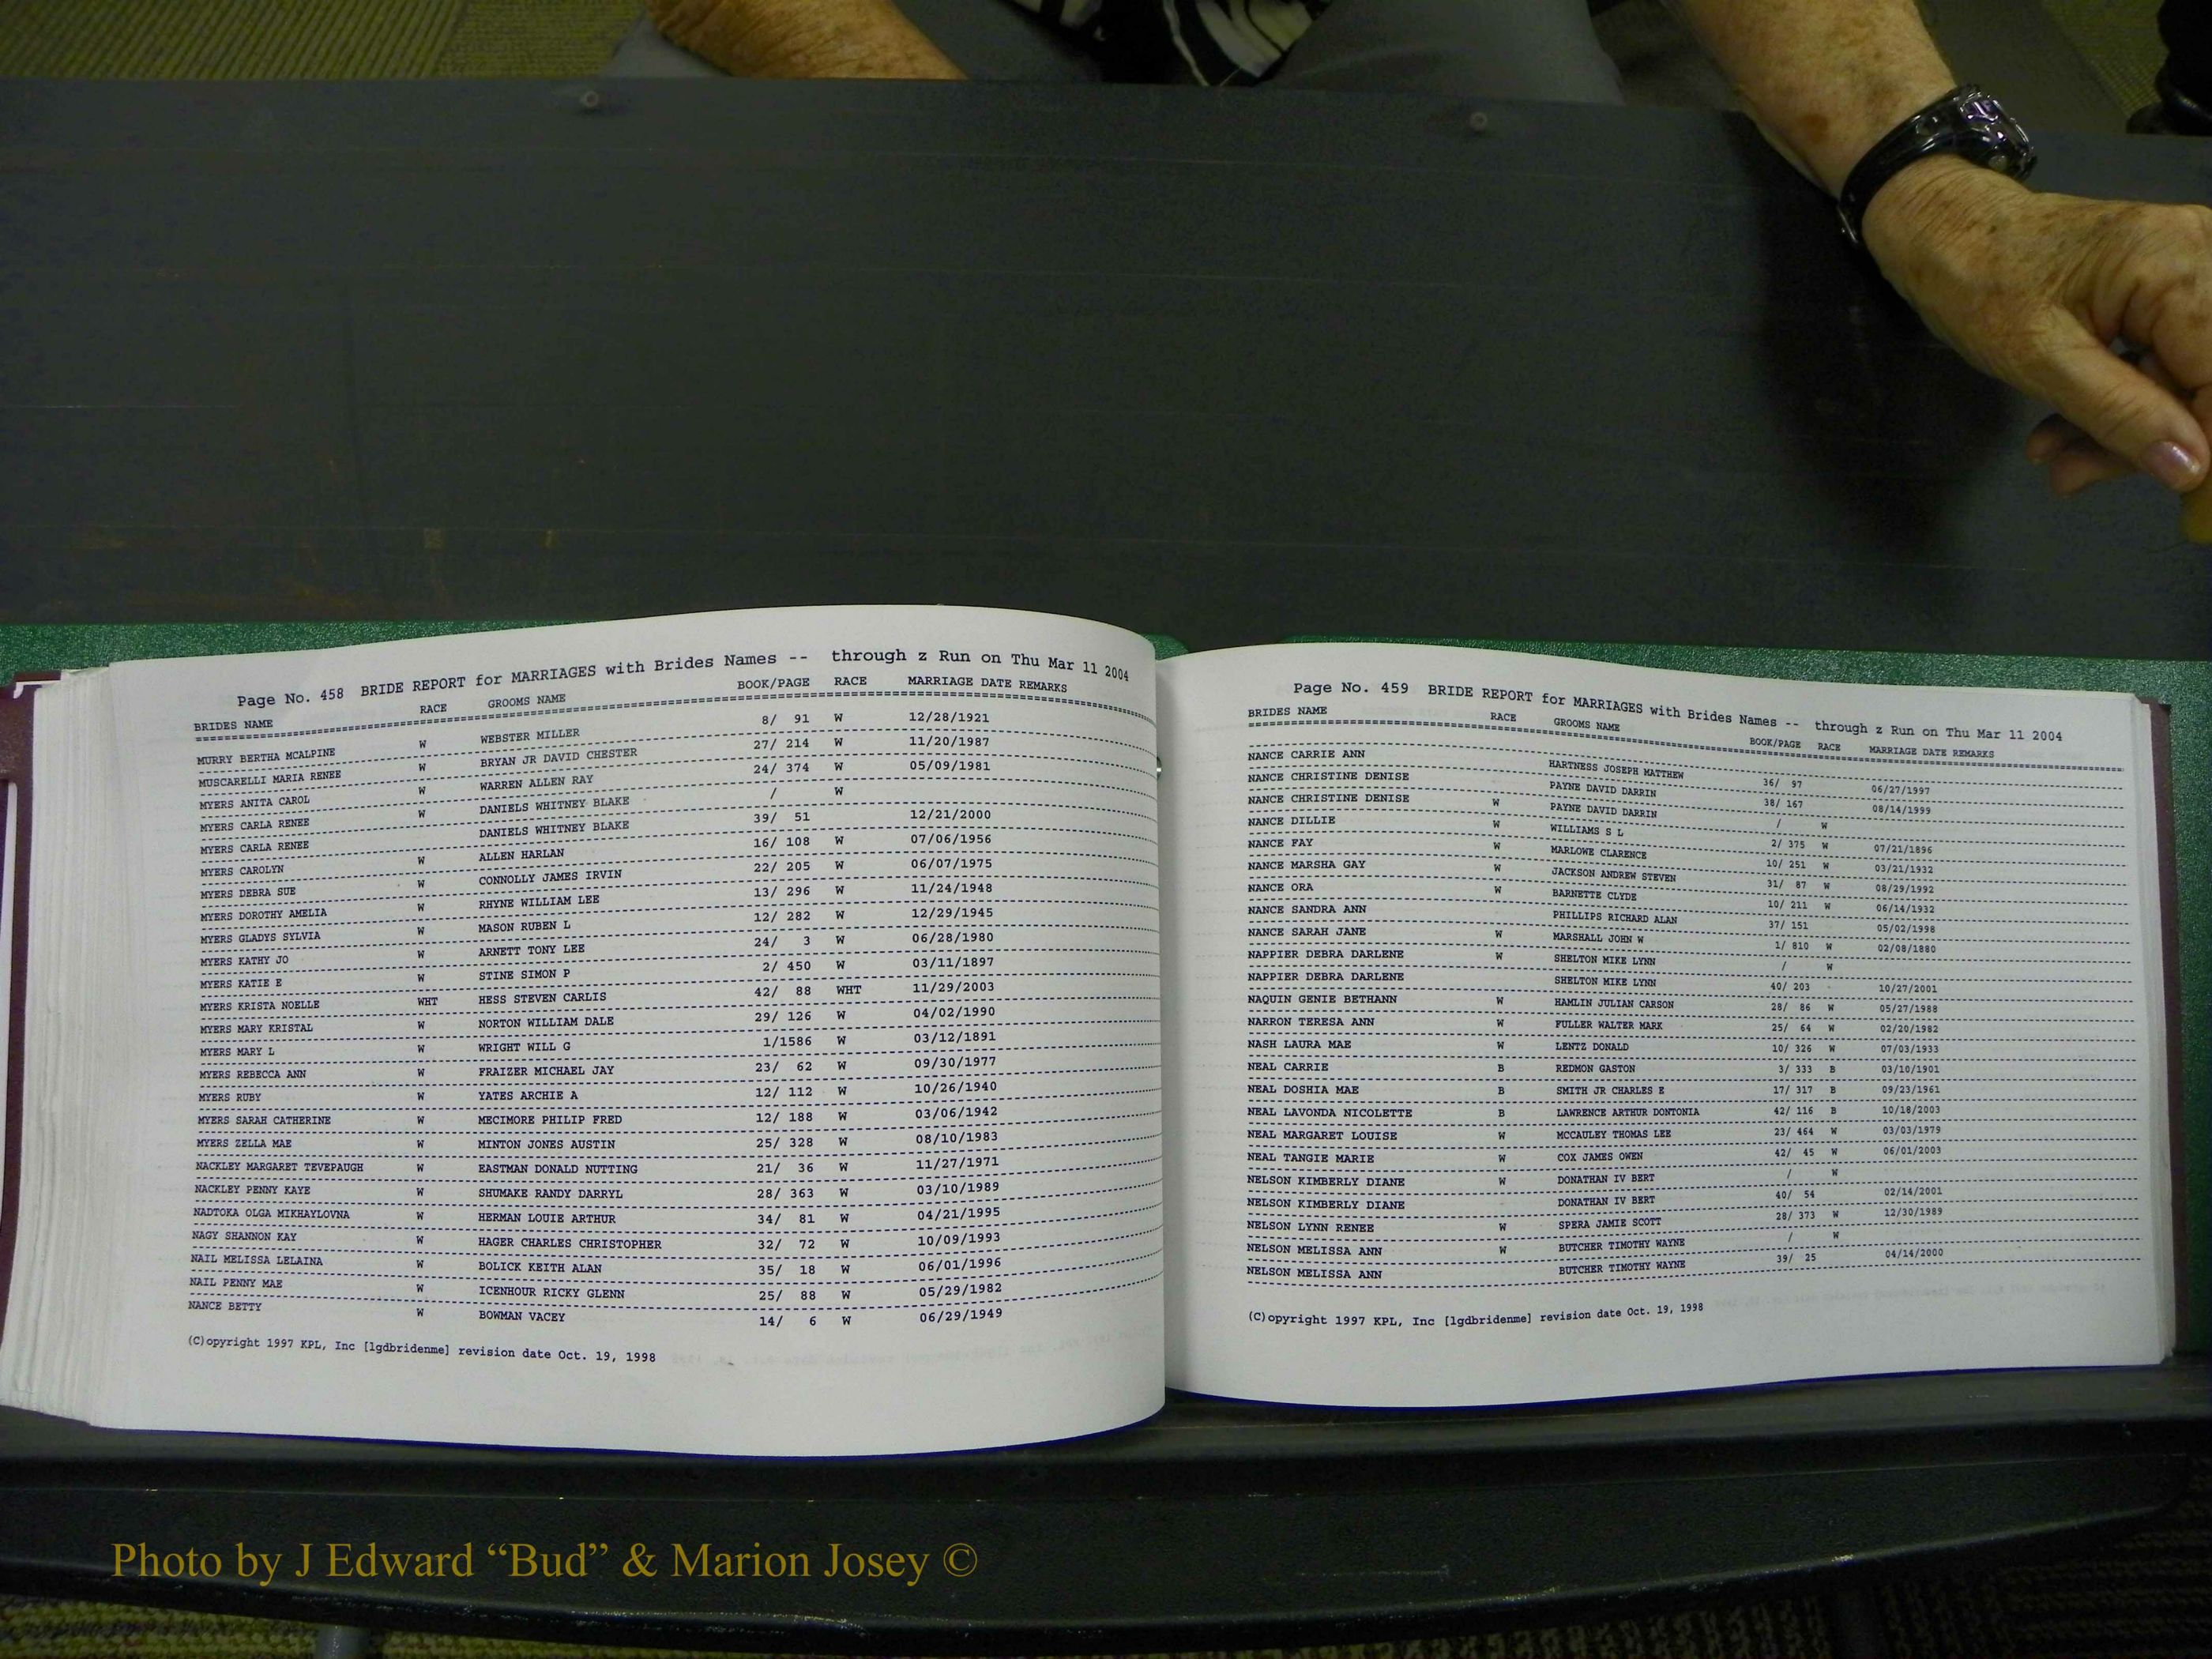 Page No. 458 BRIDE REPORT for MARRIAGES with Brides Names -- through z Run on Thu Mar 11 2004
BRIDES NAME RACE GROOMS NAME BOOK/PAGE RACE MARRIAGE DATE REMARKS
MURRY BERTHA MCALPINE W WEBSTER MILLER 8/ 91 W 12/28/1921
MUSCARELLI MARIA RENEE W BRYAN JR DAVID CHESTER 27/ 214 W 11/20/1987
MYERS ANITA CAROL W WARREN ALLEN RAY 24/ 374 W 05/09/1981
MYERS CARLA RENEE W DANIELS WHITNEY BLAKE / W
MYERS CARLA RENEE DANIELS WHITNEY BLAKE 39/ 51 12/21/2000
MYERS CAROLYN W ALLEN HARLAN 16/ 108 W 07/06/1956
MYERS DEBRA SUE W CONNOLLY JAMES IRVIN 22/ 205 W 06/07/1975
MYERS DOROTHY AMELIA W RHYNE WILLIAM LEE 13/ 296 W 11/24/1948
MYERS GLADYS SYLVIA W MASON RUBEN L 12/ 282 W 12/29/1945
MYERS KATHY JO W ARNETT TONY LEE 24/ 3 W 06/28/1980
MYERS KATIE E W STINE SIMON P 2/ 450 W 03/11/1897
MYERS KRISTA NOELLE WHT HESS STEVEN CARLIS 42/ 88 WHT 11/29/2003
MYERS MARY KRISTAL W NORTON WILLIAM DALE 29/ 126 W 04/02/1990
MYERS MARY L W WRIGHT WILL G 1/1586 W 03/12/1891
MYERS REBECCA ANN W FRAIZER MICHAEL JAY 23/ 62 W 09/30/1977
MYERS RUBY W YATES ARCHIE A 12/ 112 W 10/26/1940
MYERS SARAH CATHERINE W MECIMORE PHILIP FRED 12/ 188 W 03/06/1942
MYERS ZELLA MAE W MINTON JONES AUSTIN 25/ 328 W 08/10/1983
NACKLEY MARGARET TEVEPAUGH W EASTMAN DONALD NUTTING 21/ 36 W 11/27/1971
NACKLEY PENNY KAYE W SHUMAKE RANDY DARRYL 28/ 363 W 03/10/1989
NADTOKA OLGA MIKHAYLOVNA W HERMAN LOUIE ARTHUR 34/ 81 W 04/21/1995
NAGY SHANNON KAY W HAGER CHARLES CHRISTOPHER 32/ 72 W 10/09/1993
NAIL MELISSA LELAINA W BOLICK KEITH ALAN 35/ 18 W 06/01/1996
NAIL PENNY MAE W ICENHOUR RICKY GLENN 25/ 88 W 05/29/1982
NANCE BETTY W BOWMAN VACEY 14/ 6 W 06/29/1949
(C)opyright 1997 KPL, Inc [lgdbridenme] revision date Oct. 19, 1998
Page No. 459 BRIDE REPORT for MARRIAGES with Brides Names -- through z Run on Thu Mar 11 2004
BRIDES NAME RACE GROOMS NAME BOOK/PAGE RACE MARRIAGE DATE REMARKS
NANCE CARRIE ANN HARTNESS JOSEPH MATTHEW 36/ 97 06/27/1997
NANCE CHRISTINE DENISE PAYNE DAVID DARRIN 38/ 167 08/14/1999
NANCE CHRISTINE DENISE W PAYNE DAVID DARRIN / W
NANCE DILLIE W WILLIAMS S L 2/ 375 W 07/21/1896
NANCE FAY W MARLOWE CLARENCE 10/ 251 W 03/21/1932
NANCE MARSHA GAY W JACKSON ANDREW STEVEN 31/ 87 W 08/29/1992
NANCE ORA W BARNETTE CLYDE 10/ 211 W 06/14/1932
NANCE SANDRA ANN PHILLIPS RICHARD ALAN 37/ 151 05/02/1998
NANCE SARAH JANE W MARSHALL JOHN W 1/ 810 W 02/08/1880
NAPPIER DEBRA DARLENE W SHELTON MIKE LYNN / W
NAPPIER DEBRA DARLENE SHELTON MIKE LYNN 40/ 203 10/27/2001
NAQUIN GENIE BETHANN W HAMLIN JULIAN CARSON 28/ 86 W 05/27/1988
NARRON TERESA ANN W FULLER WALTER MARK 25/ 64 W 02/20/1982
NASH LAURA MAE W LENTZ DONALD 10/ 326 W 07/03/1933
NEAL CARRIE B REDMON GASTON 3/ 333 B 03/10/1901
NEAL DOSHIA MAE B SMITH JR CHARLES E 17/ 317 B 09/23/1961
NEAL LAVONDA NICOLETTE B LAWRENCE ARTHUR DONTONIA 42/ 116 B 10/18/2003
NEAL MARGARET LOUISE W MCCAULEY THOMAS LEE 23/ 464 W 03/03/1979
NEAL TANGIE MARIE W COX JAMES OWEN 42/ 45 W 06/01/2003
NELSON KIMBERLY DIANE W DONATHAN IV BERT / W
NELSON KIMBERLY DIANE DONATHAN IV BERT 40/ 54 02/14/2001
NELSON LYNN RENEE W SPERA JAMIE SCOTT 28/ 373 W 12/30/1989
NELSON MELISSA ANN W BUTCHER TIMOTHY WAYNE / W
NELSON MELISSA ANN BUTCHER TIMOTHY WAYNE 39/ 25 04/14/2000
(C)opyright 1997 KPL, Inc [lgdbridenme] revision date Oct. 19, 1998
Photo by J Edward “Bud” & Marion Josey ©